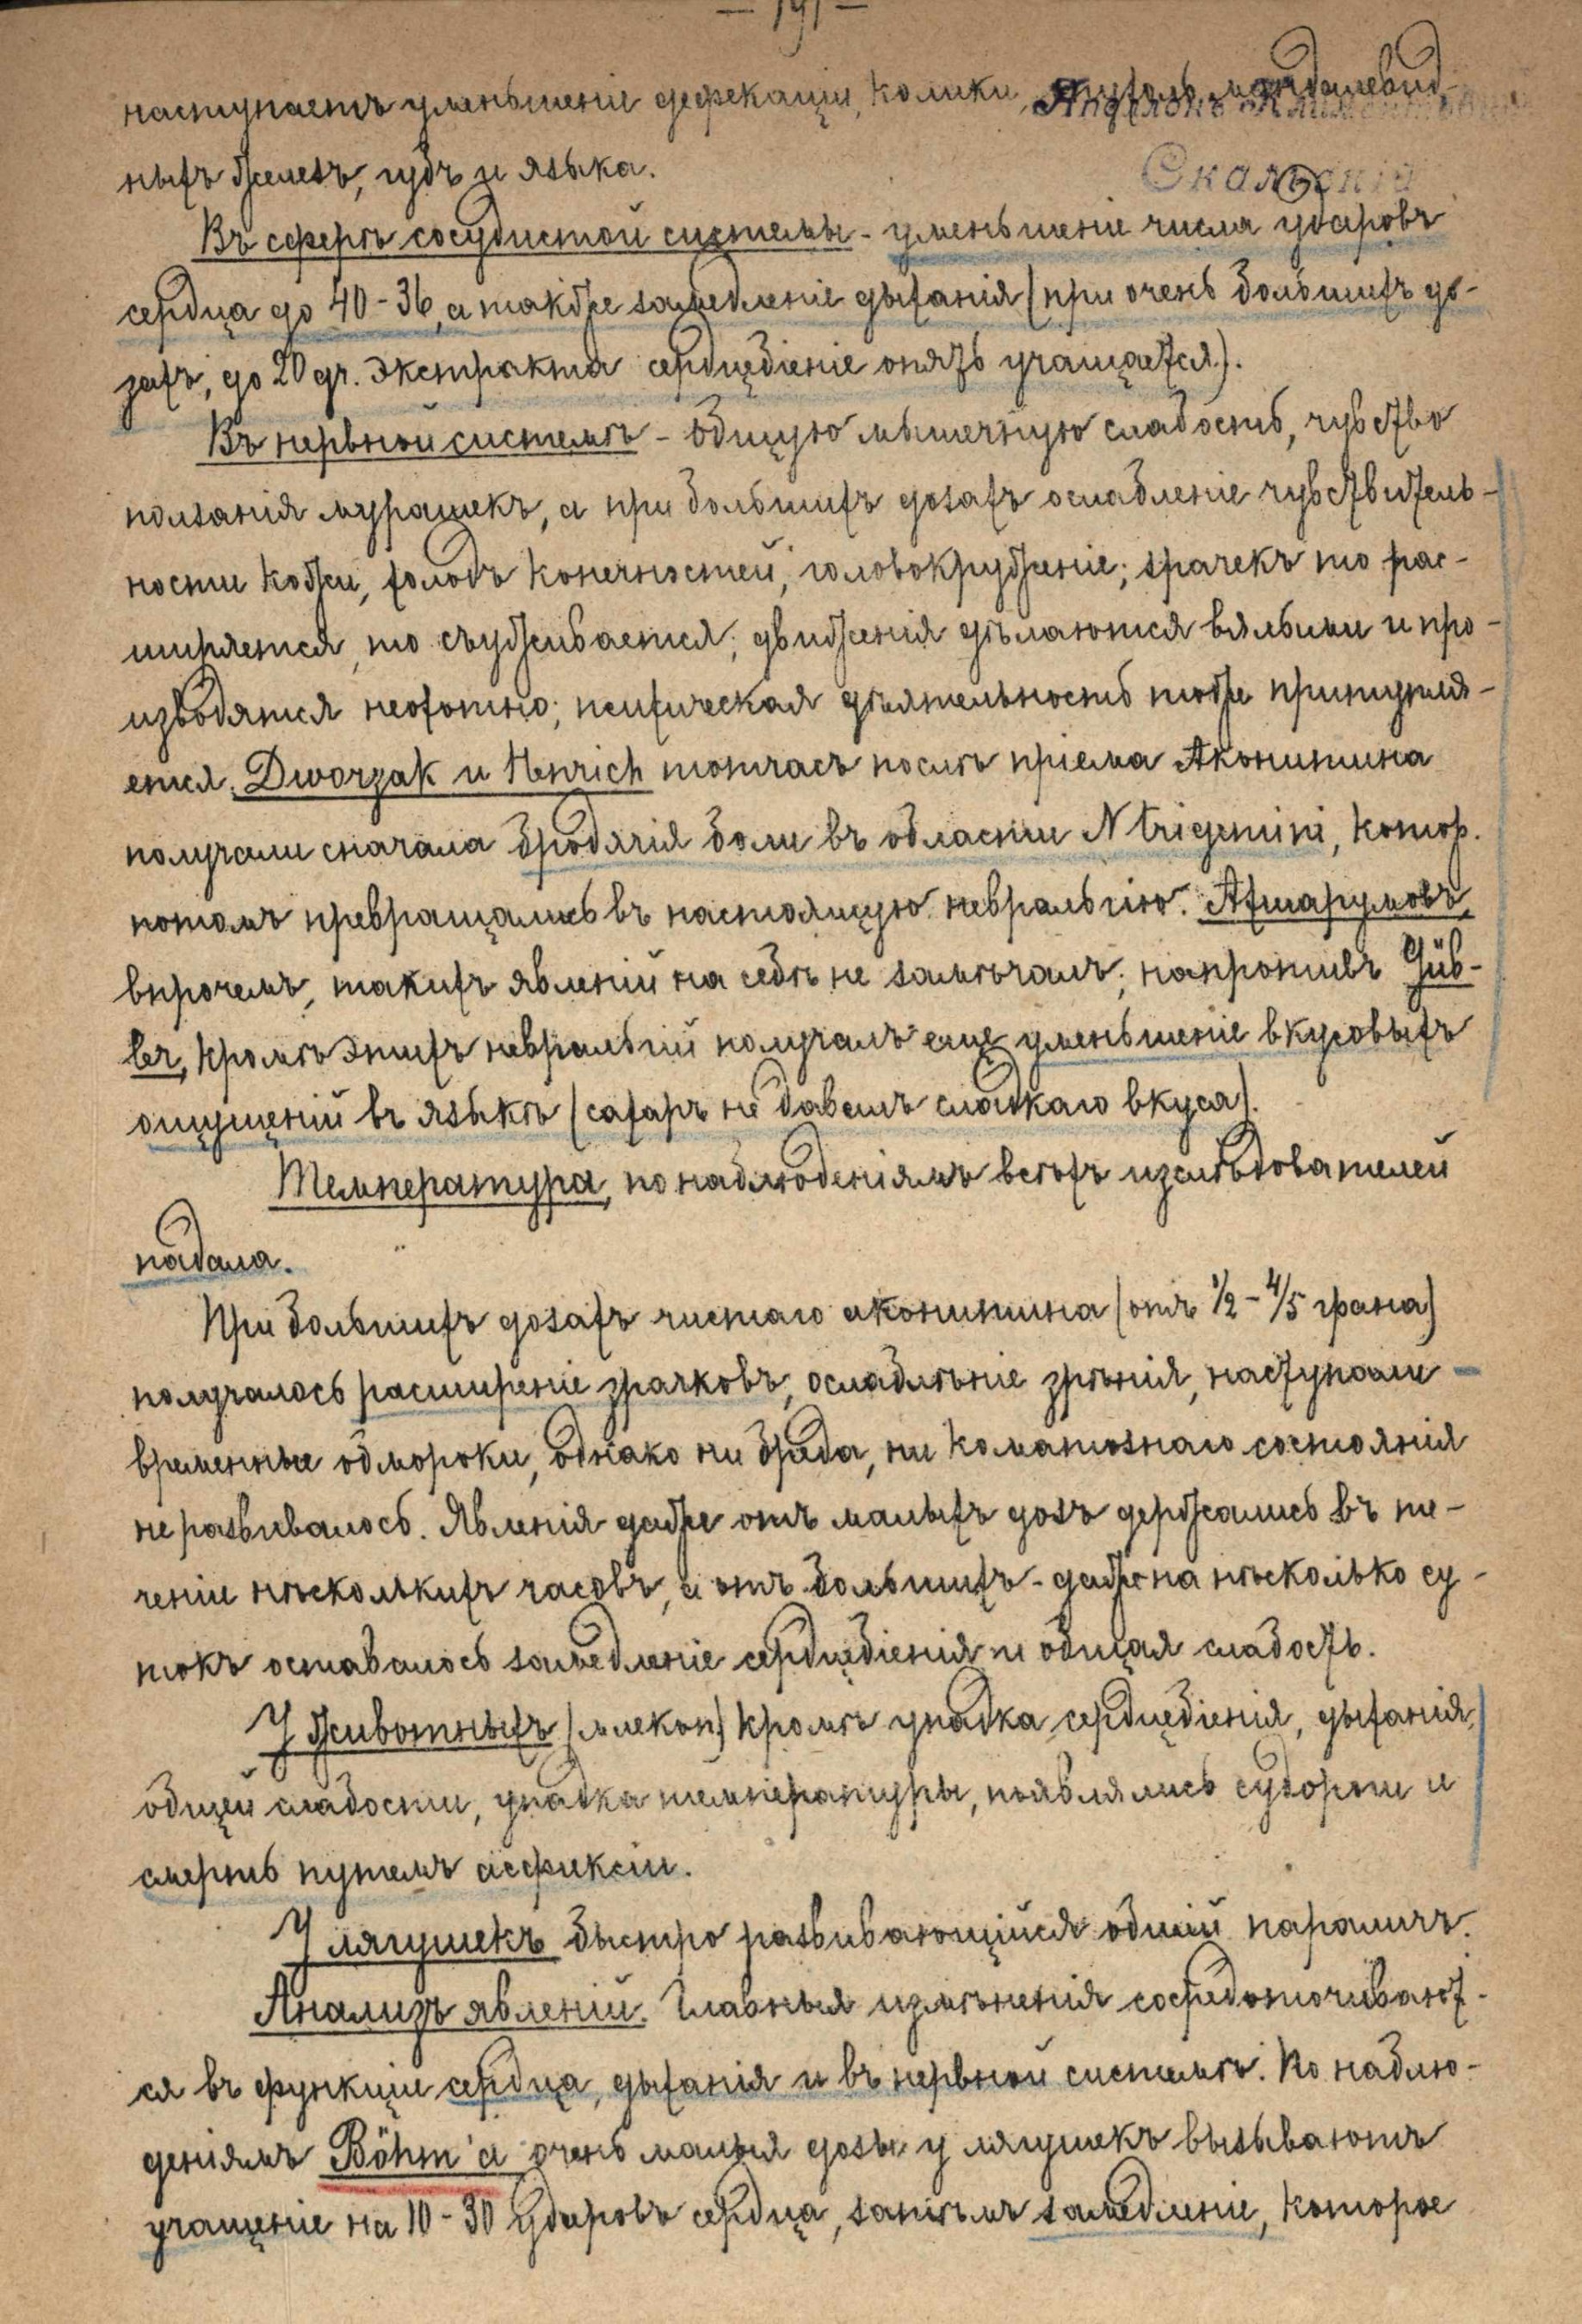 — 191 —
наступаетъ уменьшеніе дефекаціи, колики, опухоль миндалевид-
ныхъ железъ, губъ и языка.
Въ сферѣ сосудистой системы - уменьшеніе числа ударовъ
сердца до 40-36, а также замедленіе дыханія (при очень большихъ до-
захъ, до 20 gr. экстракта сердцебіеніе опять учащается).
Въ нервной системѣ - общую мышечную слабость, чувство
ползанія мурашекъ, а при большихъ дозахъ ослабленіе чувствитель-
ности кожи, холодъ конечностей, головокруженіе; зрачекъ то рас-
ширяется, то съуживается; движенія дѣлаются вялыми и про-
изводятся неохотно; психическая дѣятельность тоже притупля-
ется. Dworzak и Henrich тотчасъ послѣ пріема Аконитина
получали сначала бродячія боли въ области N trigemini, котор.
потомъ превращались въ настоящую невральгію. Ахшарумовъ,
впрочемъ, такихъ явленій на себѣ не замѣчалъ; напротивъ Гюб-
лер, кромѣ этихъ невральгій получалъ еще уменьшеніе вкусовыхъ
ощущеній въ языкѣ (сахаръ не давалъ сладкаго вкуса).
Температура, по наблюденіямъ всѣхъ изслѣдователей
падала.
При большихъ дозахъ чистаго аконитина (отъ 1/2 - 4/5 грана)
получалось расширеніе зрачковъ, ослаблѣніе зрѣнія, наступали
временные обмороки, однако ни бреда, ни коматознаго состоянія
не развивалось. Явленія даже отъ малыхъ дозъ держались въ те-
ченіи нѣсколькихъ часовъ, а отъ большихъ - даже на нѣсколько су-
токъ оставалось замедленіе сердцебіенія и общая слабость.
У животныхъ (млекоп.) кромѣ упадка сердцебіенія, дыханія,
общей слабости, упадка температуры, появлялись судороги и
смерть путемъ асфиксіи.
У лягушекъ быстро развивающійся общій параличъ.
Анализъ явленій. Главныя измѣненія сосредоточивают-
ся въ функціи сердца, дыханія и въ нервной системѣ. По наблю-
деніямъ Böhm'а очень малыя дозы у лягушекъ вызываютъ
учащеніе на 10-30 ударовъ сердца, затѣмъ замедленіе, которое